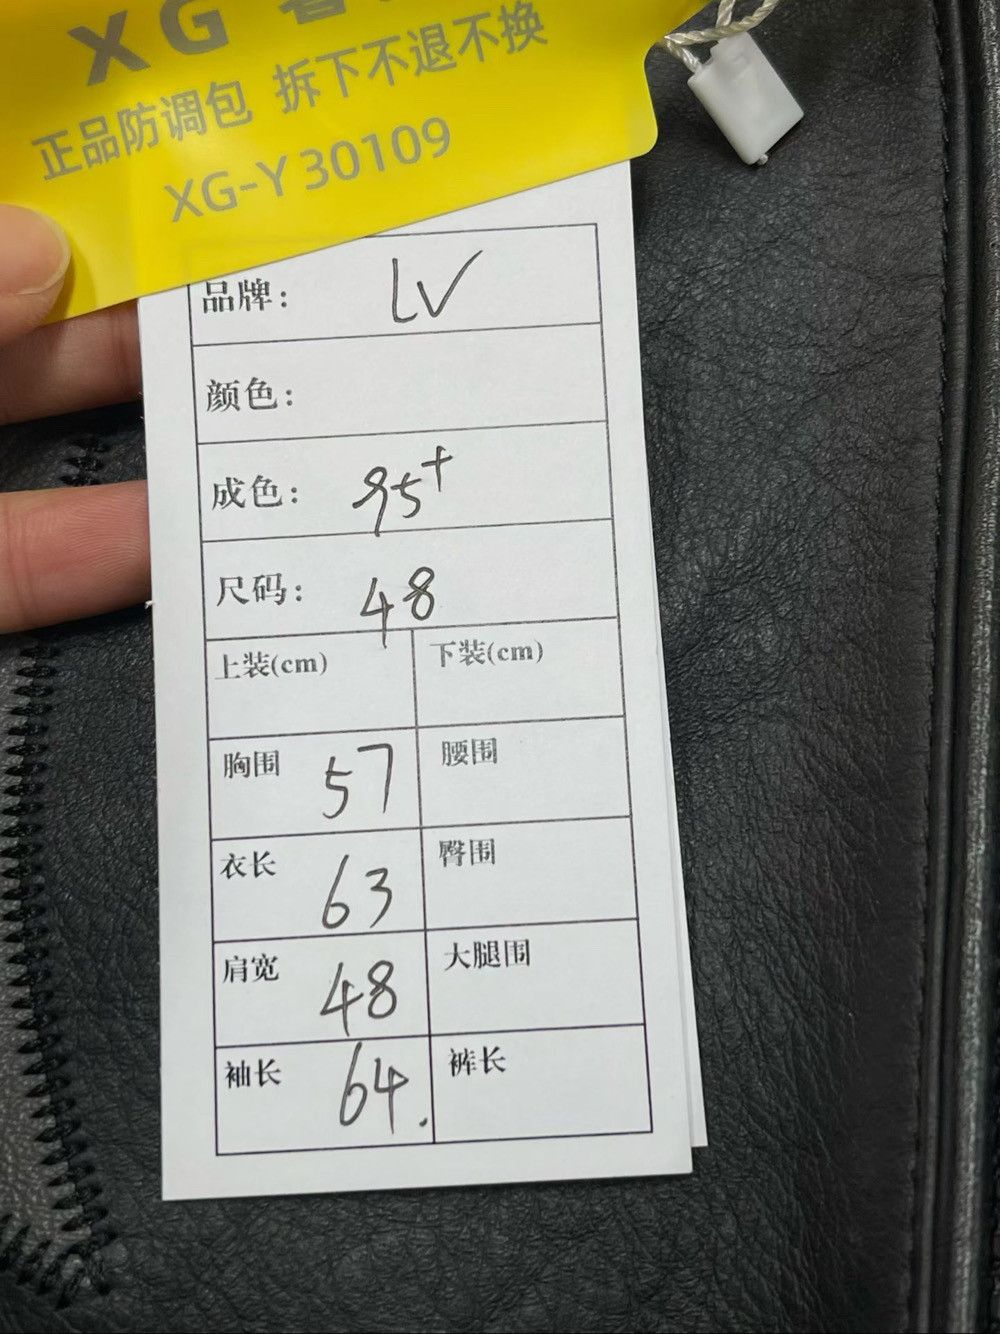 XG
正品防调包 拆下不退不换
XG-Y30109
品牌: LV
颜色:
成色: 95+
尺码: 48
上装(cm) 下装(cm)
胸围 57 腰围
衣长 63 臀围
肩宽 48 大腿围
袖长 64. 裤长